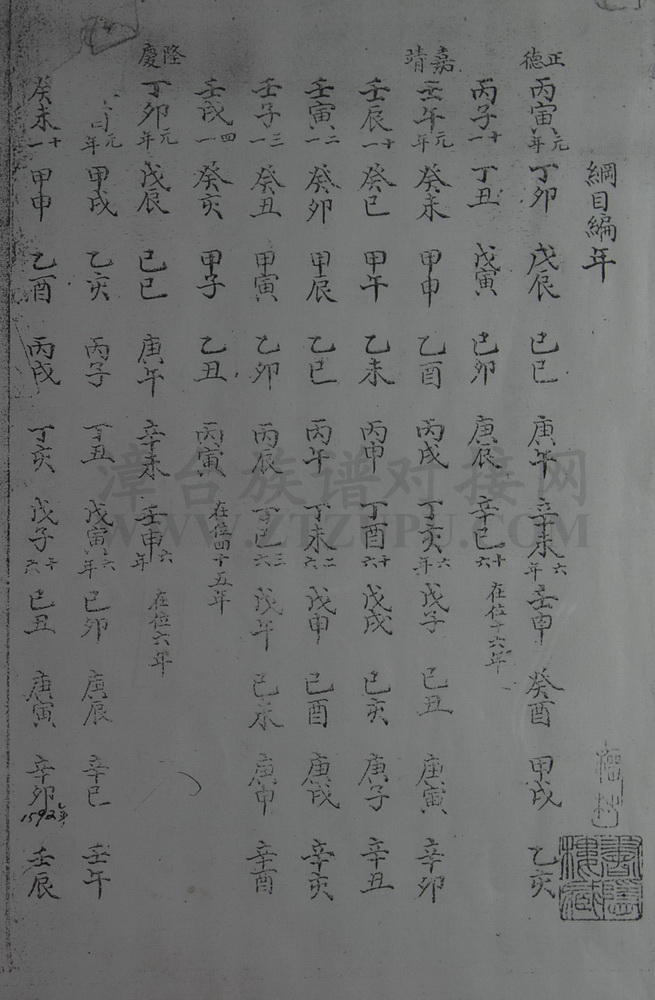 綱目編年
正德
丙寅元年 丁卯 戊辰 己巳 庚午 辛未六年 壬申 癸酉 甲戌 乙亥
丙子十一 丁丑 戊寅 己卯 庚辰 辛巳十六 在位十六年
嘉靖
壬午元年 癸未 甲申 乙酉 丙戌 丁亥六年 戊子 己丑 庚寅 辛卯
壬辰十一 癸巳 甲午 乙未 丙申 丁酉十六 戊戌 己亥 庚子 辛丑
壬寅二一 癸卯 甲辰 乙巳 丙午 丁未二六 戊申 己酉 庚戌 辛亥
壬子三一 癸丑 甲寅 乙卯 丙辰 丁巳三六 戊午 己未 庚申 辛酉
壬戌四一 癸亥 甲子 乙丑 丙寅 在位四十五年
隆慶
丁卯元年 戊辰 己巳 庚午 辛未 壬申六年 在位六年
元年 甲戌 乙亥 丙子 丁丑 戊寅六年 己卯 庚辰 辛巳 壬午
癸未十一 甲申 乙酉 丙戌 丁亥 戊子十六 己丑 庚寅 辛卯 1592年 壬辰
漳台族谱对接网
WWW.ZTZUPU.COM